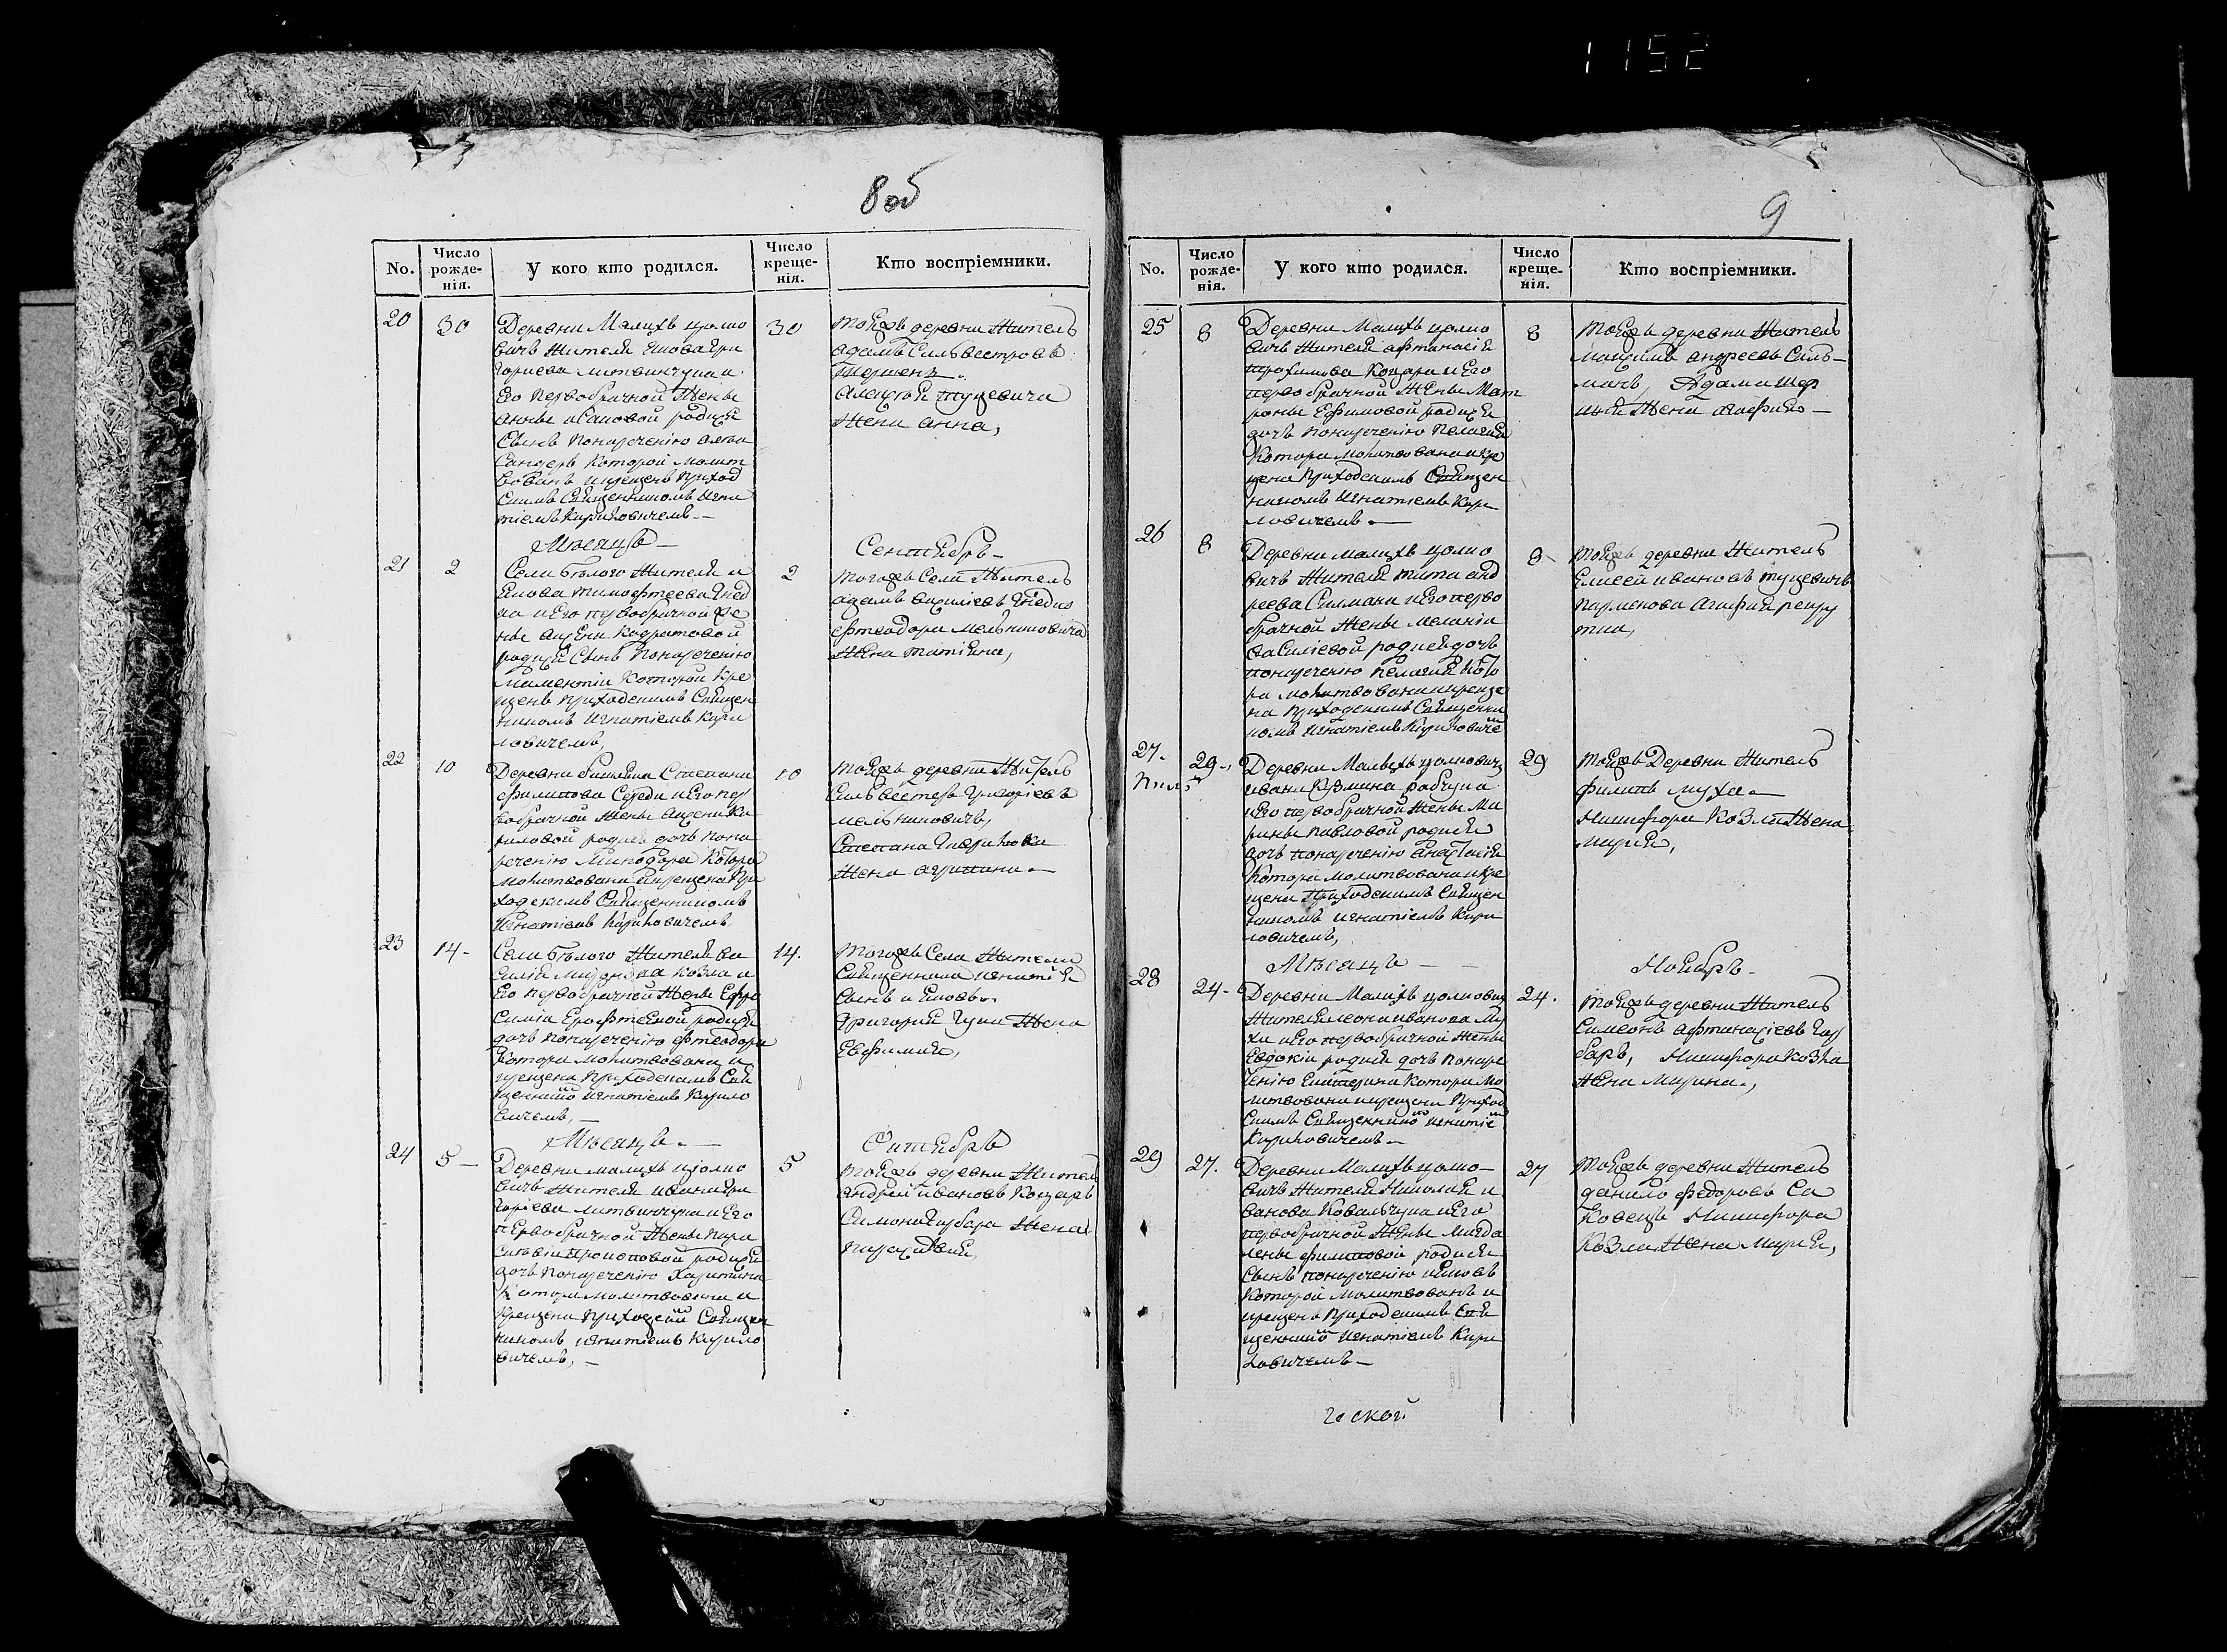 1152
8 об
No.
Число рожде-нія.
У кого кто родился.
Число креще-нія.
Кто воспріемники.
20
30
Деревни Малыхъ цолко
вичъ жителя Якова Гри
горіева Литвинчука и
его первобрачной жены
Анны Исаковой родися
сынъ по нареченію Алек
сандеръ которой молит
вованъ и крещенъ приход
скимъ священникомъ Игна
тіемъ Кириловичемъ. —
30
тойжъ деревни житель
Адамъ Сильвестровъ
Шершень.
Алексѣя Туцевича
жена Анна,
Мѣсяцъ —
Сентябрь —
21
2
Села Бѣлого жителя и
Якова Тимофтеева Гнед
ка и его первобрачной же
ны Кодратовой
родися сынъ по нареченію
Маментіи которой кре
щенъ приходскимъ священ
никомъ Игнатіемъ Кири
ловичемъ,
2
тогожъ села житель
Адамъ Василіевъ Гнедко
Фтеодора Мельниковича
жена Татіяна,
22
10
Деревни Степана
Филипова Середи и его пер
вобрачной жены Ки
риловой родися дочь по на
реченію Минодора котора
молитвована и крещена при
ходскимъ священникомъ
Игнатіемъ Кириловичемъ.
10
тойжъ деревни житель
Сильвестеръ Григоріевъ
Мельниковичъ,
Степана Гаврилюка
жена Агрипина. —
23
14 -
Села Бѣлого жителя Ва
силія Козла и
его первобрачной жены Ефро
синіи Ерофтеевой родися
дочь по нареченію Фтеодора
котора молитвована и
крещена приходскимъ свя
щенико Игнатіемъ Кирило
вичемъ, —
14.
тогожъ села жители
священника Игнатія
сынъ Яковъ.
Григорія Гука жена
Евфимія,
Мѣсяцъ. —
Октябрь
24
5 —
Деревни малыхъ цолко
вичъ жителя Ивана Гри
горіева Литвинчука и его
первобрачной жены Пара
скевіи Прокоповой родися
дочь по нареченію Харитина
котора молитвована и
крещена приходски священ
никомъ Игнатіемъ Кирило
вичемъ, —
5
тойжъ деревни житель
Андрей Ивановъ Коцаръ
Симона Гарбара жена
Параскевія,
9
No.
Число рожде-нія.
У кого кто родился.
Число креще-нія.
Кто воспріемники.
25
8
Деревни Малыхъ цолко
вичъ жителя Афтанасія
Трофимова Коцара и его
первобрачной жены Мат
роны Ефимовой родися
дочь по нареченію Пелагия
котора молитвована и кре
щена приходскимъ священ
никомъ Игнатіемъ Кири
ловичемъ. —
8
тойжъ деревни житель
Максимъ Андреевъ Силь-
Адама
жена Агафия —
26
8
Деревни малыхъ цолко
вичъ жителя Тита Анд
реева Силмана и его перво
брачной жены Меланіи
Василіевой родися дочь
по нареченію Пелагия кото
ра молитвована и креще
на приходскимъ священни
комъ Игнатіемъ Кириловиче
8 -
тойжъ деревни житель
Елисей Ивановъ Туцевичъ
Парменова Агафия рекру
тка,
27.
29 -
Деревни Малыхъ цолковичъ
Ивана Кузмина Рабчука
и его первобрачной жены Ма
рины Павловой родися
дочь по нареченію Анастасія
котора молитвована и кре
щена приходскимъ священ
никомъ Игнатіемъ Кири
ловичемъ,
29
тойжъ Деревни житель
Филипъ Муха —
Никифора Козла жена
Марія,
Мѣсяцъ —
Ноябрь -
28
24 -
Деревни Малыхъ цолковичъ
жителя Леона Иванова Му
хи и его первобрачной жены
Евдокіи родися дочь по наре
ченію Екатерина котора мо
литвована и крещена приход
скимъ священнико Игнатіе
Кириловичемъ. —
24.
тойжъ деревни житель
Симеонъ Афтанасіевъ Гар
баръ, Никифора Козла
жена Марина.,
29
27.
Деревни Малыхъ цолко-
вичъ жителя Николая И
ванова Ковальчука и его
первобрачной жены Магда
лены Филиповой родися
сынъ по нареченію Яковъ
которой молитвованъ и
крещенъ приходскимъ свя
щенико Игнатіемъ Кири
ловичемъ —
27
тойжъ деревни житель
Данило Федоровъ Са
ковецъ Никифора
Козла жена Марія,